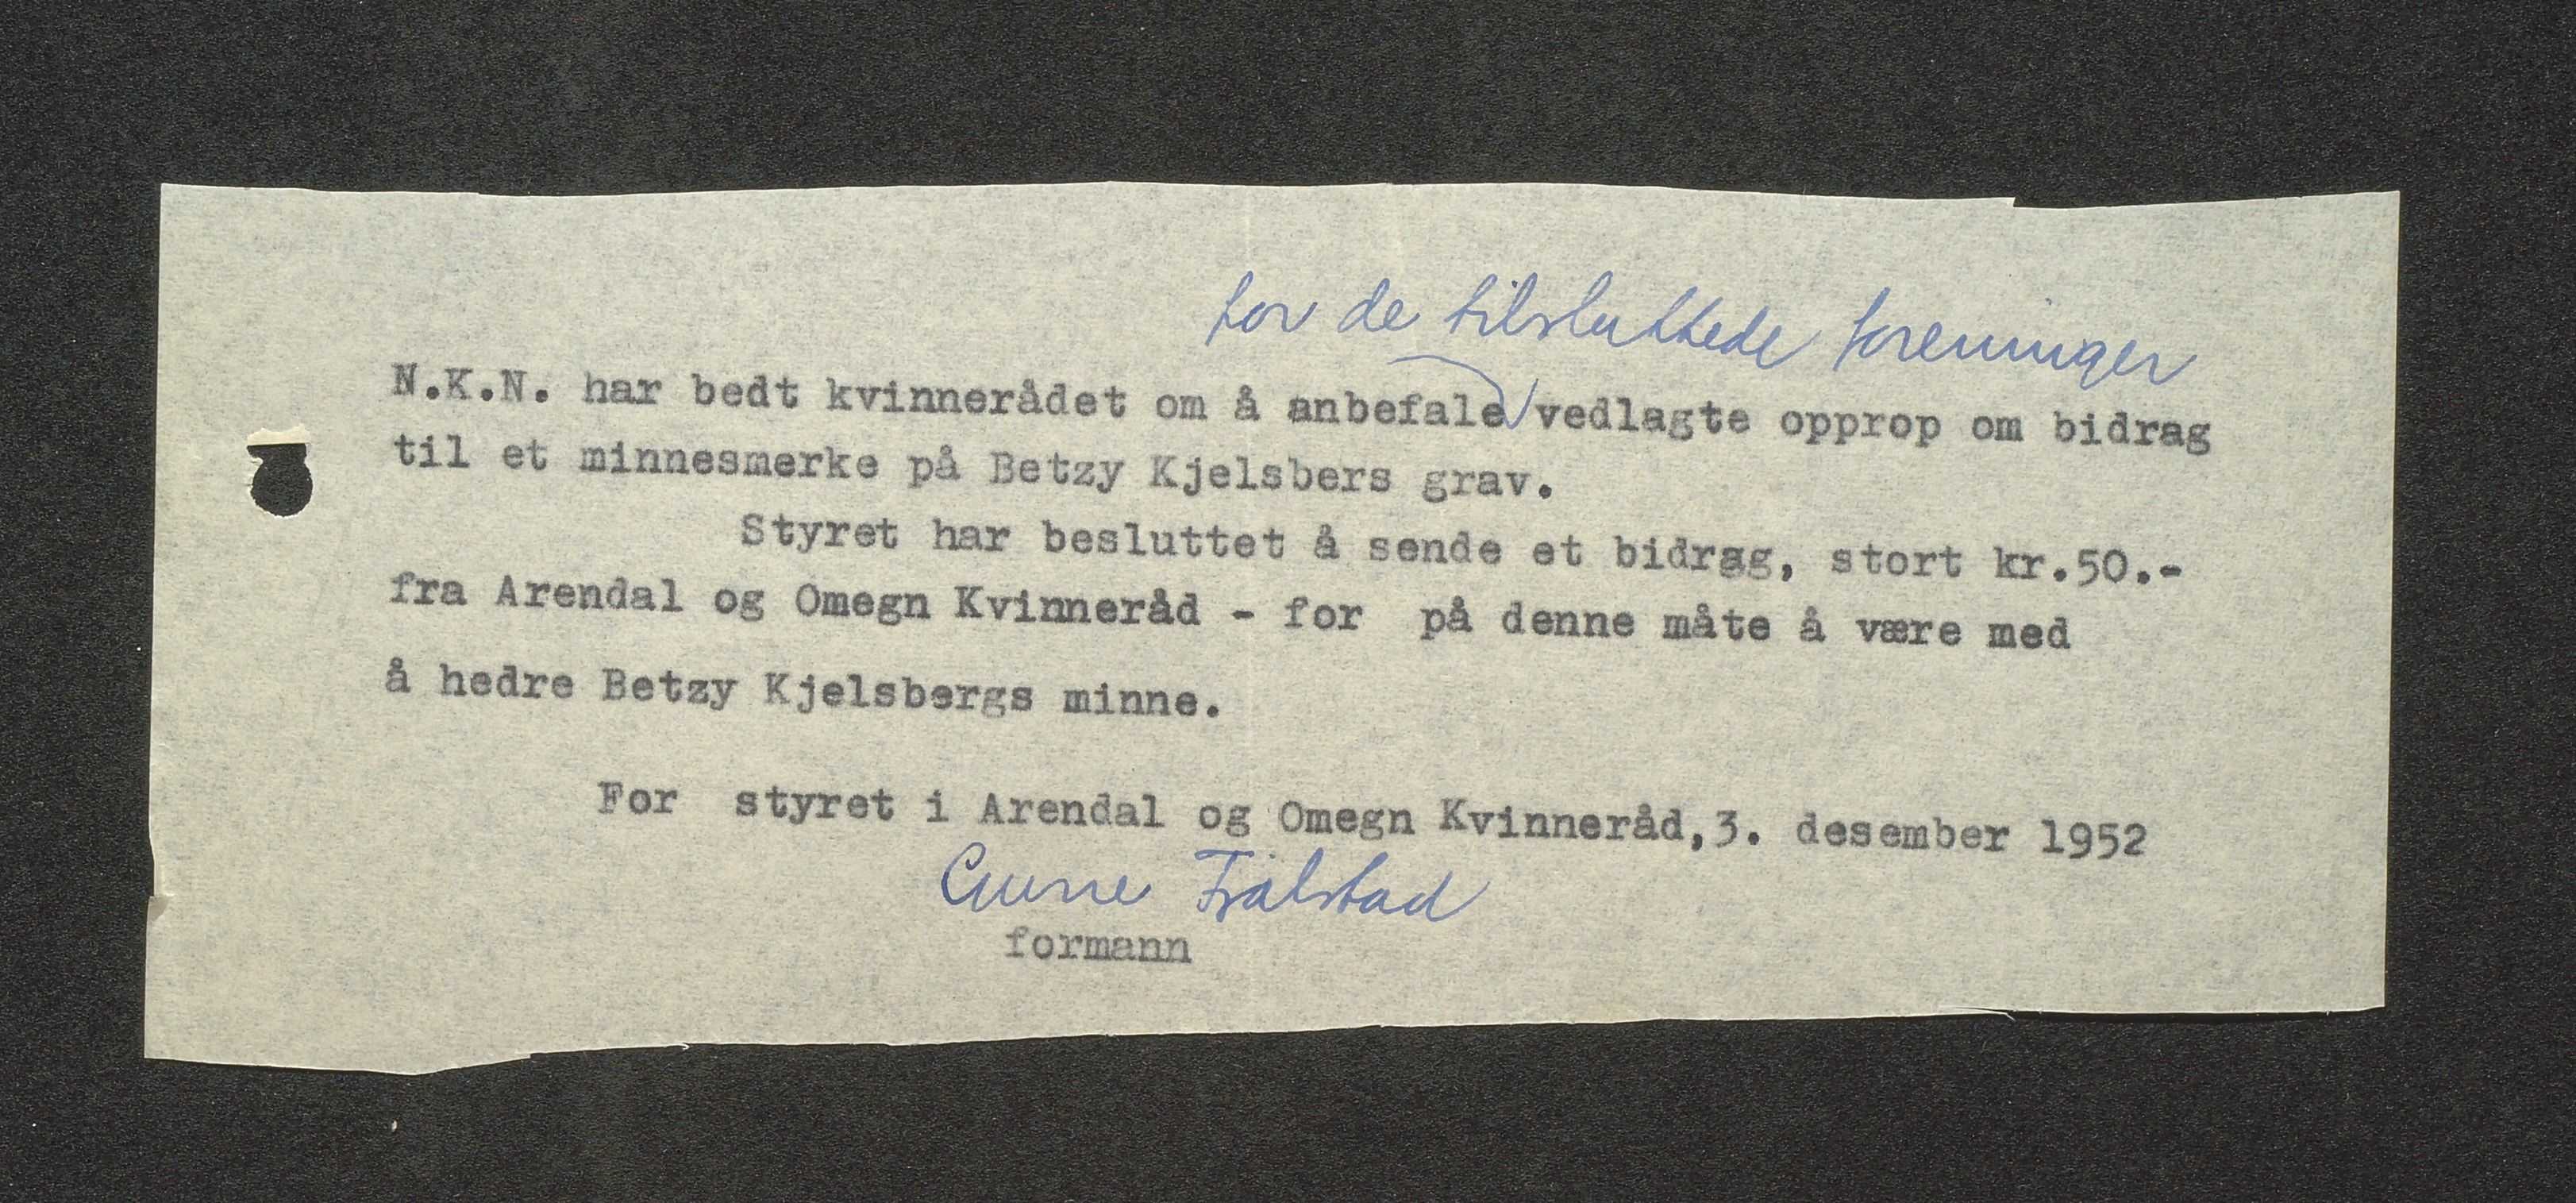 for de tilsluttede foreninger
N.K.N. har bedt kvinnerådet om å anbefale vedlagte opprop om bidrag
til et minnesmerke på Betzy Kjelsbers grav.
Styret har besluttet å sende et bidrag, stort kr.50.-
fra Arendal og Omegn Kvinneråd - for på denne måte å være med
å hedre Betzy Kjelsbergs minne.
For styret i Arendal og Omegn Kvinneråd,3. desember 1952
Aune Fjalstad
formann